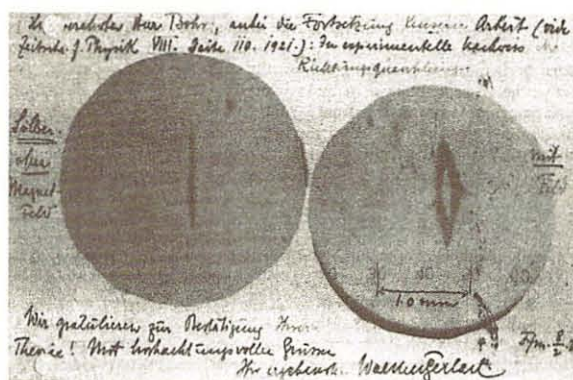 Herr Bohr, anbei die Fortsetzung unserer Arbeit (vide
Zeitschr. f. Physik VIII. Seite 110. 1921.): Der experimentelle Nachweis
Richtungsquantelung
Silber
ohne
Magnet-
feld
mit
Feld
30 40
1.0 mm
Wir gratulieren zur Bestätigung Ihrer
Theorie! Mit hochachtungsvollen Grüssen
Ihr ergebenster Walther Gerlach